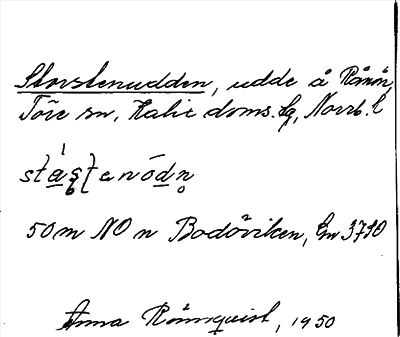 Storstenudden, udde å Rånön,
Töre sn, Kalix doms. lg, Norrb. l
50 m NO n Bodöviken, Em 3790
Anna Rönnquist, 1950